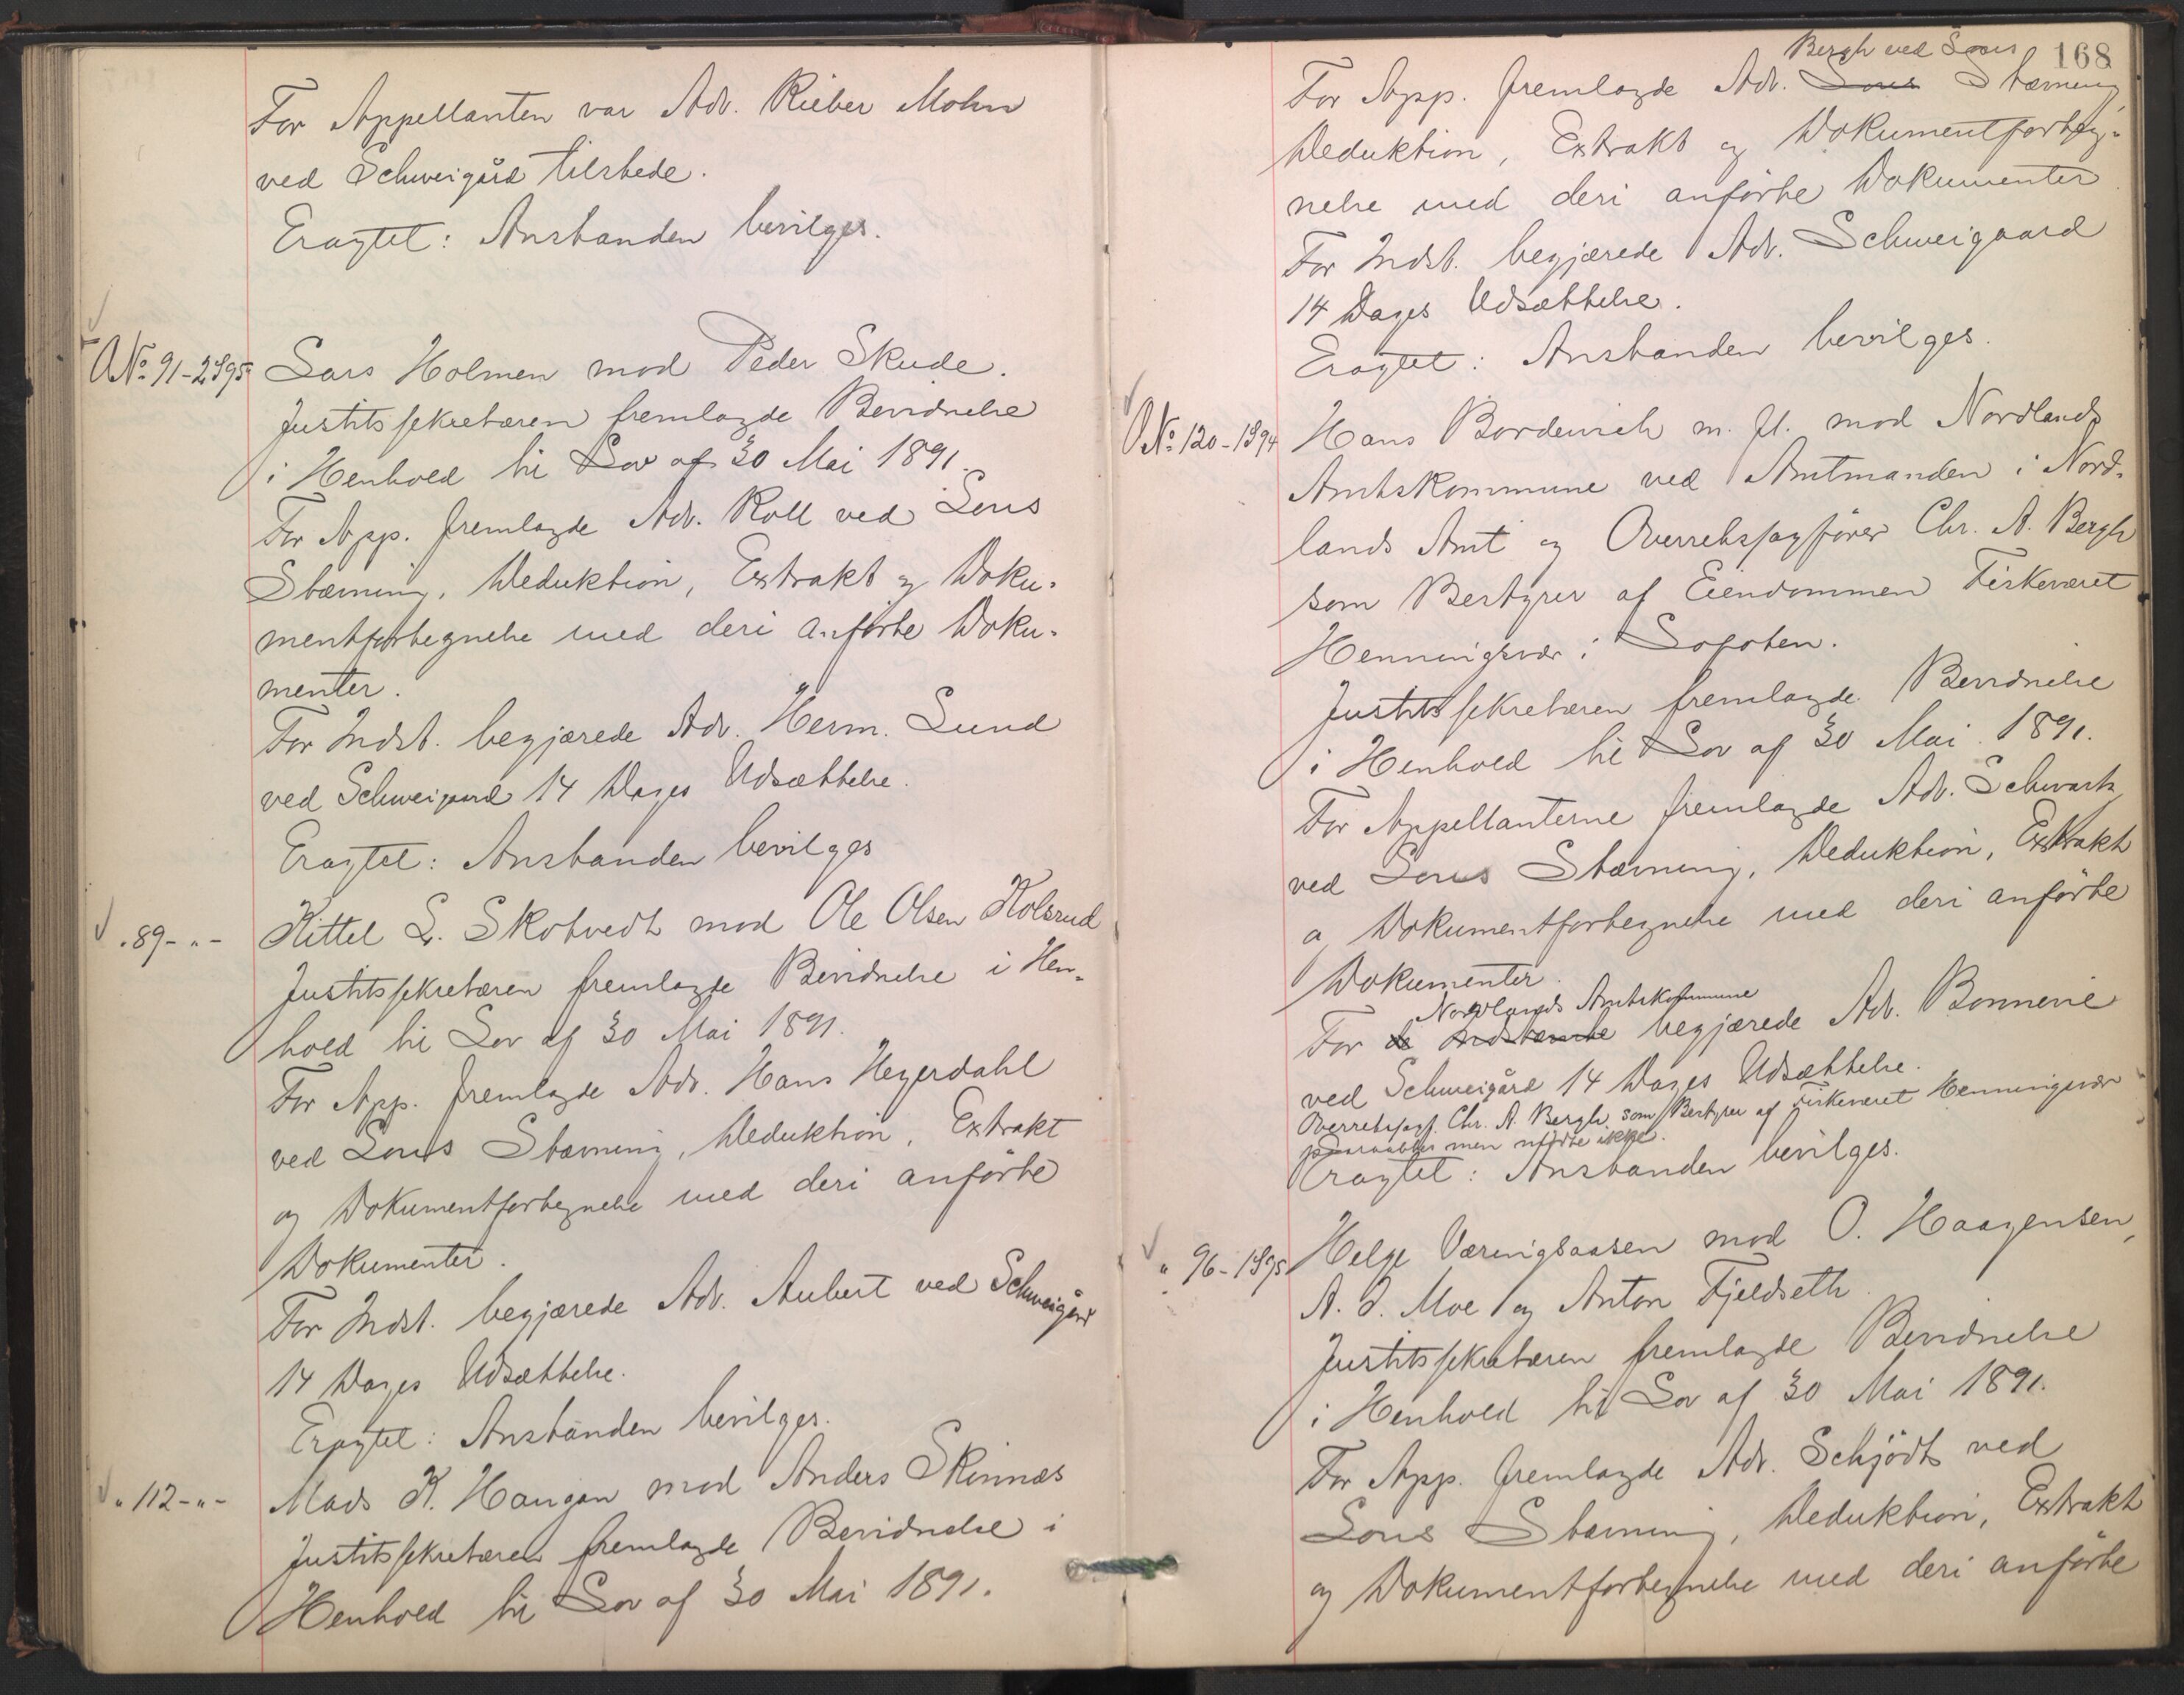 For Appellanten var Adv. Rieber Mohn
ved Schweigård tilstede.
Eragtet: Anstanden bevilges.
No. 91-2 1895 Lars Holmen mod Peder Skude.
Justitssekretæren fremlagde Bevidnelse
i Henhold til Lov af 30 Mai 1891.
For App. fremlagde Adv. Roll ved Lous
Stævning, Deduktion, Extrakt og Doku-
mentfortegnelse med deri anførte Doku-
menter.
For Indst. begjærede Adv. Herm. Lund
ved Schweigaard 14 Dages Udsættelse.
Eragtet: Anstanden bevilges
" 89-"- Kittel L. Skotvedt mod Ole Olsen Kolsrud
Justitssekretæren fremlagde Bevidnelse i Hen-
hold til Lov af 30 Mai 1891.
For App. fremlagde Adv. Hans Heyerdahl
ved Lous Stævning, Deduktion, Extrakt
og Dokumentfortegnelse med deri anførte
Dokumenter.
For Indst. begjærede Adv. Aubert ved Schweigård
14 Dages Udsættelse.
Eragtet: Anstanden bevilges.
" 112-"- Mads K. Haugan mod Anders Skinnes
Justitssekretæren fremlagde Bevidnelse i
Henhold til Lov af 30 Mai 1891.
168
Bergh ved Lous
For App. fremlagde Adv. Lous Stævning,
Deduktion, Extrakt og Dokumentforteg-
nelse med deri anførte Dokumenter
For Indst. begjærede Adv. Schweigaard
14 Dages Udsættelse.
Eragtet: Anstanden bevilges.
No. 120-1894 Hans Bordevich m. fl. mod Nordlands
Amtskommune ved Amtmanden i Nord-
lands Amt og Overretssagfører Chr. A. Bergh
som Bestyrer af Eiendommen Fiskeværet
Henningsvær i Lofoten.
Justitssekretæren fremlagde Bevidnelse
i Henhold til Lov af 30 Mai 1891.
For Appellanterne fremlagde Adv. Schwartz
ved Lous Stævning, Deduktion, Extrakt
og Dokumentfortegnelse med deri anførte
Dokumenter.
Nordlands Amtskommune
For de Indstævnte begjærede Adv. Bonnevie
ved Schweigård 14 Dages Udsættelse.
Overretssagf. Chr. A. Bergh som Bestyrer af Fiskeværet Henningsvær
paaraabtes men mødte ikke.
Eragtet: Anstanden bevilges.
" 96-1895 Helge Væringsaasen mod O. Haagensen,
A. J. Moe og Anton Fjeldseth.
Justitssekretæren fremlagde Bevidnelse
i Henhold til Lov af 30 Mai 1891.
For App. fremlagde Adv. Schjødt ved
Lous Stævning, Deduktion, Extrakt
og Dokumentfortegnelse med deri anførte